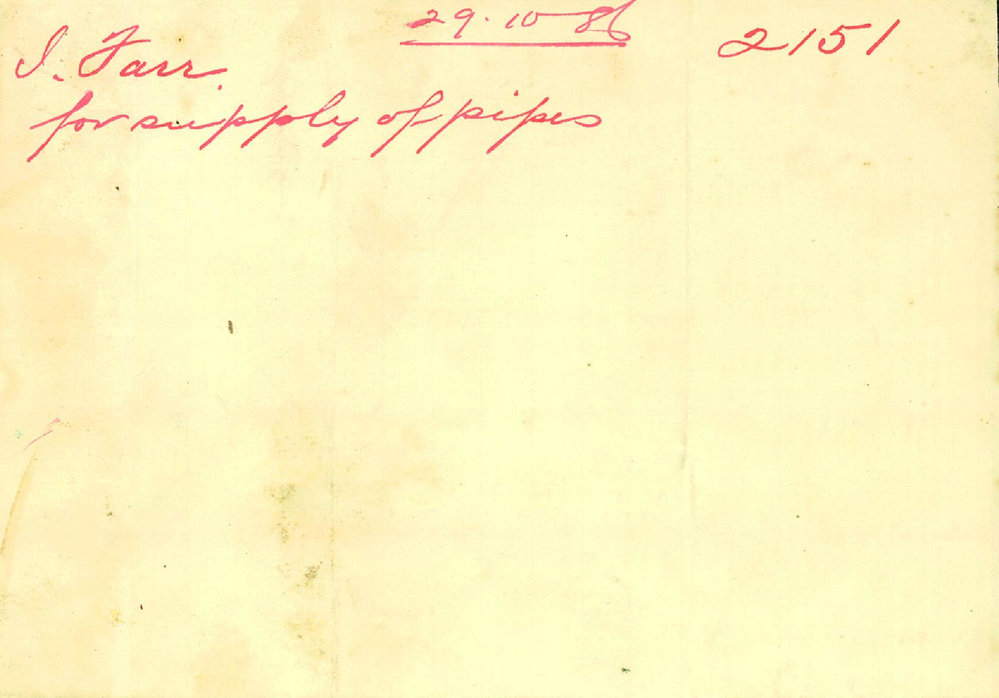 29.10-86
2151
I. Farr.
for supply of pipes